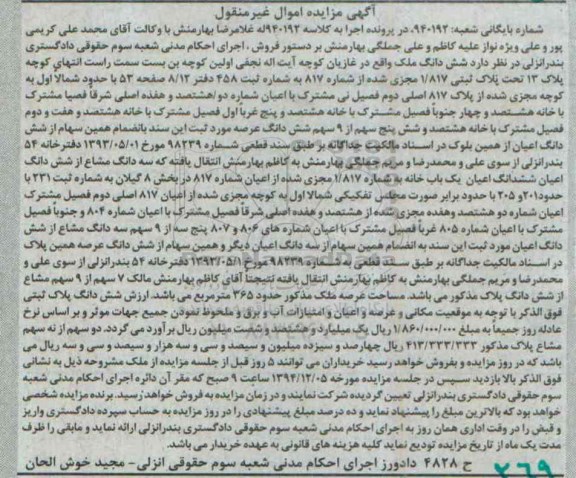 آگهی مزایده اموال غیرمنقول
شماره بایگانی شعبه: ۹۴۰۱۹۲، در پرونده اجرا به کلاسه ۹۴۰۱۹۲له غلامرضا بهارمنش با وکالت آقای محمد علی کریمی
پور و علی ویژه نواز علیه کاظم و علی جملگی بهارمنش بر دستور فروش ، اجرای احکام مدنی شعبه سوم حقوقی دادگستری
بندرانزلی در نظر دارد شش دانگ ملک واقع در غازیان کوچه آیت اله نجفی اولین کوچه بن بست سمت راست انتهای کوچه
پلاک ۱۳ تحت پلاک ثبتی ۱/۸۱۷ مجزی شده از شماره ۸۱۷ به شماره ثبت ۴۵۸ دفتر ۸/۱۲ صفحه ۵۳ با حدود شمالا اول به
کوچه مجزی شده از پلاک ۸۱۷ اصلی دوم فصیل نی مشترک با اعیان شماره دو/هشتصد و هفده اصلی شرقاً فصیا مشترک
با خانه هشتصد و چهار جنوباً فصیل مشترک با خانه هشتصد و پنج غرباً اول فصیل مشترک با خانه هشتصد و هفت و دوم
فصیل مشترک با خانه هشتصد و شش پنج سهم از ۹ سهم شش دانگ عرصه مورد ثبت این سند بانضمام همین سهام از شش
دانگ اعیان از همین بلوک در اسناد مالکیت جداگانه بر طبق سند قطعی شماره ۹۸۲۳۹ مورخ ۱۳۹۳/۰۵/۰۱ دفترخانه ۵۴
بندرانزلی از سوی علی و محمدرضا و مریم جملگی بهارمنش به کاظم بهارمنش انتقال یافته که سه دانگ مشاع از شش دانگ
اعیان ششدانگ اعیان یک باب خانه به شماره ۱/۸۱۷ مجزی شده از اعیان شماره ۸۱۷ در بخش ۸ گیلان به شماره ثبت ۲۳۱ با
حدود۲۰۱ و ۲۰۵ با حدود برابر صورت مجلس تفکیکی شمالا اول به کوچه مجزی شده از اعیان ۸۱۷ اصلی دوم فصیل مشترک
اعیان شماره دو هشتصد وهفده مجزی شده از هشتصد و هفده اصلی شرقاً فصیل مشترک با اعیان شماره ۸۰۴ و جنوباً فصیل
مشترک با اعیان شماره ۸۰۵ غرباً فصیل مشترک با اعیان شماره های ۸۰۶ و ۸۰۷ پنج سه از ۹ سهم سه دانگ مشاع از شش
دانگ اعیان مورد ثبت این سند به انضمام همین سهام از سه دانگ اعیان دیگر و همین سهام از شش دانگ عرصه همین پلاک
در اسناد مالکیت جداگانه بر طبق سند قطعی به شماره ۹۸۲۳۹ مورخ ۱۳۹۳/۰۵/۰۱ دفترخانه ۵۴ بندرانزلی از سوی علی و
محمدرضا و مریم جملگی بهارمنش به کاظم بهارمنش انتقال یافته نتیجتاً آقای کاظم بهارمنش مالک ۷ سهم از ۹ سهم مشاع
از شش دانگ پلاک مذکور می باشد. مساحت عرصه ملک مذکور حدود ۳۶۵ مترمربع می باشد. ارزش شش دانگ پلاک ثبتی
فوق الذکر با توجه به موقعیت مکانی و عرصه و اعیان و امتیازات آب و برق و ملحوظ نمودن جمیع جهات موثر و بر اساس نرخ
عادله روز جمیعاً به مبلغ ۱/۸۶۰/۰۰۰/۰۰۰ ریال یک میلیارد و هشتصد و شصت میلیون ریال برآورد می گردد. دو سهم از نه سهم
مشاع پلاک مذکور ۴۱۳/۳۳۳/۳۳۳ ریال چهارصد و سیزده میلیون و سیصد و سی و سه هزار و سیصد و سی و سه ریال می
باشد که در روز مزایده و بفروش خواهد رسید خریداران می توانند ۵ روز قبل از جلسه مزایده از ملک مشروحه ذیل به نشانی
فوق الذکر بالا بازدید سپس در جلسه مزایده مورخه ۱۳۹۴/۱۲/۰۵ ساعت ۹ صبح که مقر آن دائره اجرای احکام مدنی شعبه
سوم حقوقی دادگستری بندرانزلی تعیین گردیده شرکت نمایند و در زمان مزایده به فروش خواهد رسید. برنده مزایده شخصی
خواهد بود که بالاترین مبلغ را پیشنهاد نماید و ده درصد مبلغ پیشنهادی را در روز مزایده به حساب سپرده دادگستری واریز
و قبض را در وقت اداری همان روز به اجرای احکام مدنی شعبه سوم حقوقی دادگستری بندرانزلی ارائه نماید و مابقی را ظرف
مدت یک ماه از تاریخ مزایده تودیع نماید کلیه هزینه های قانونی به عهده خریدار می باشد.
ح ۴۸۲۸ دادورز اجرای احکام مدنی شعبه سوم حقوقی انزلی- مجید خوش الحان
۷۶۹